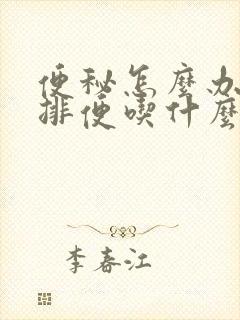 便秘怎麼办
排便喫什麼
李春江